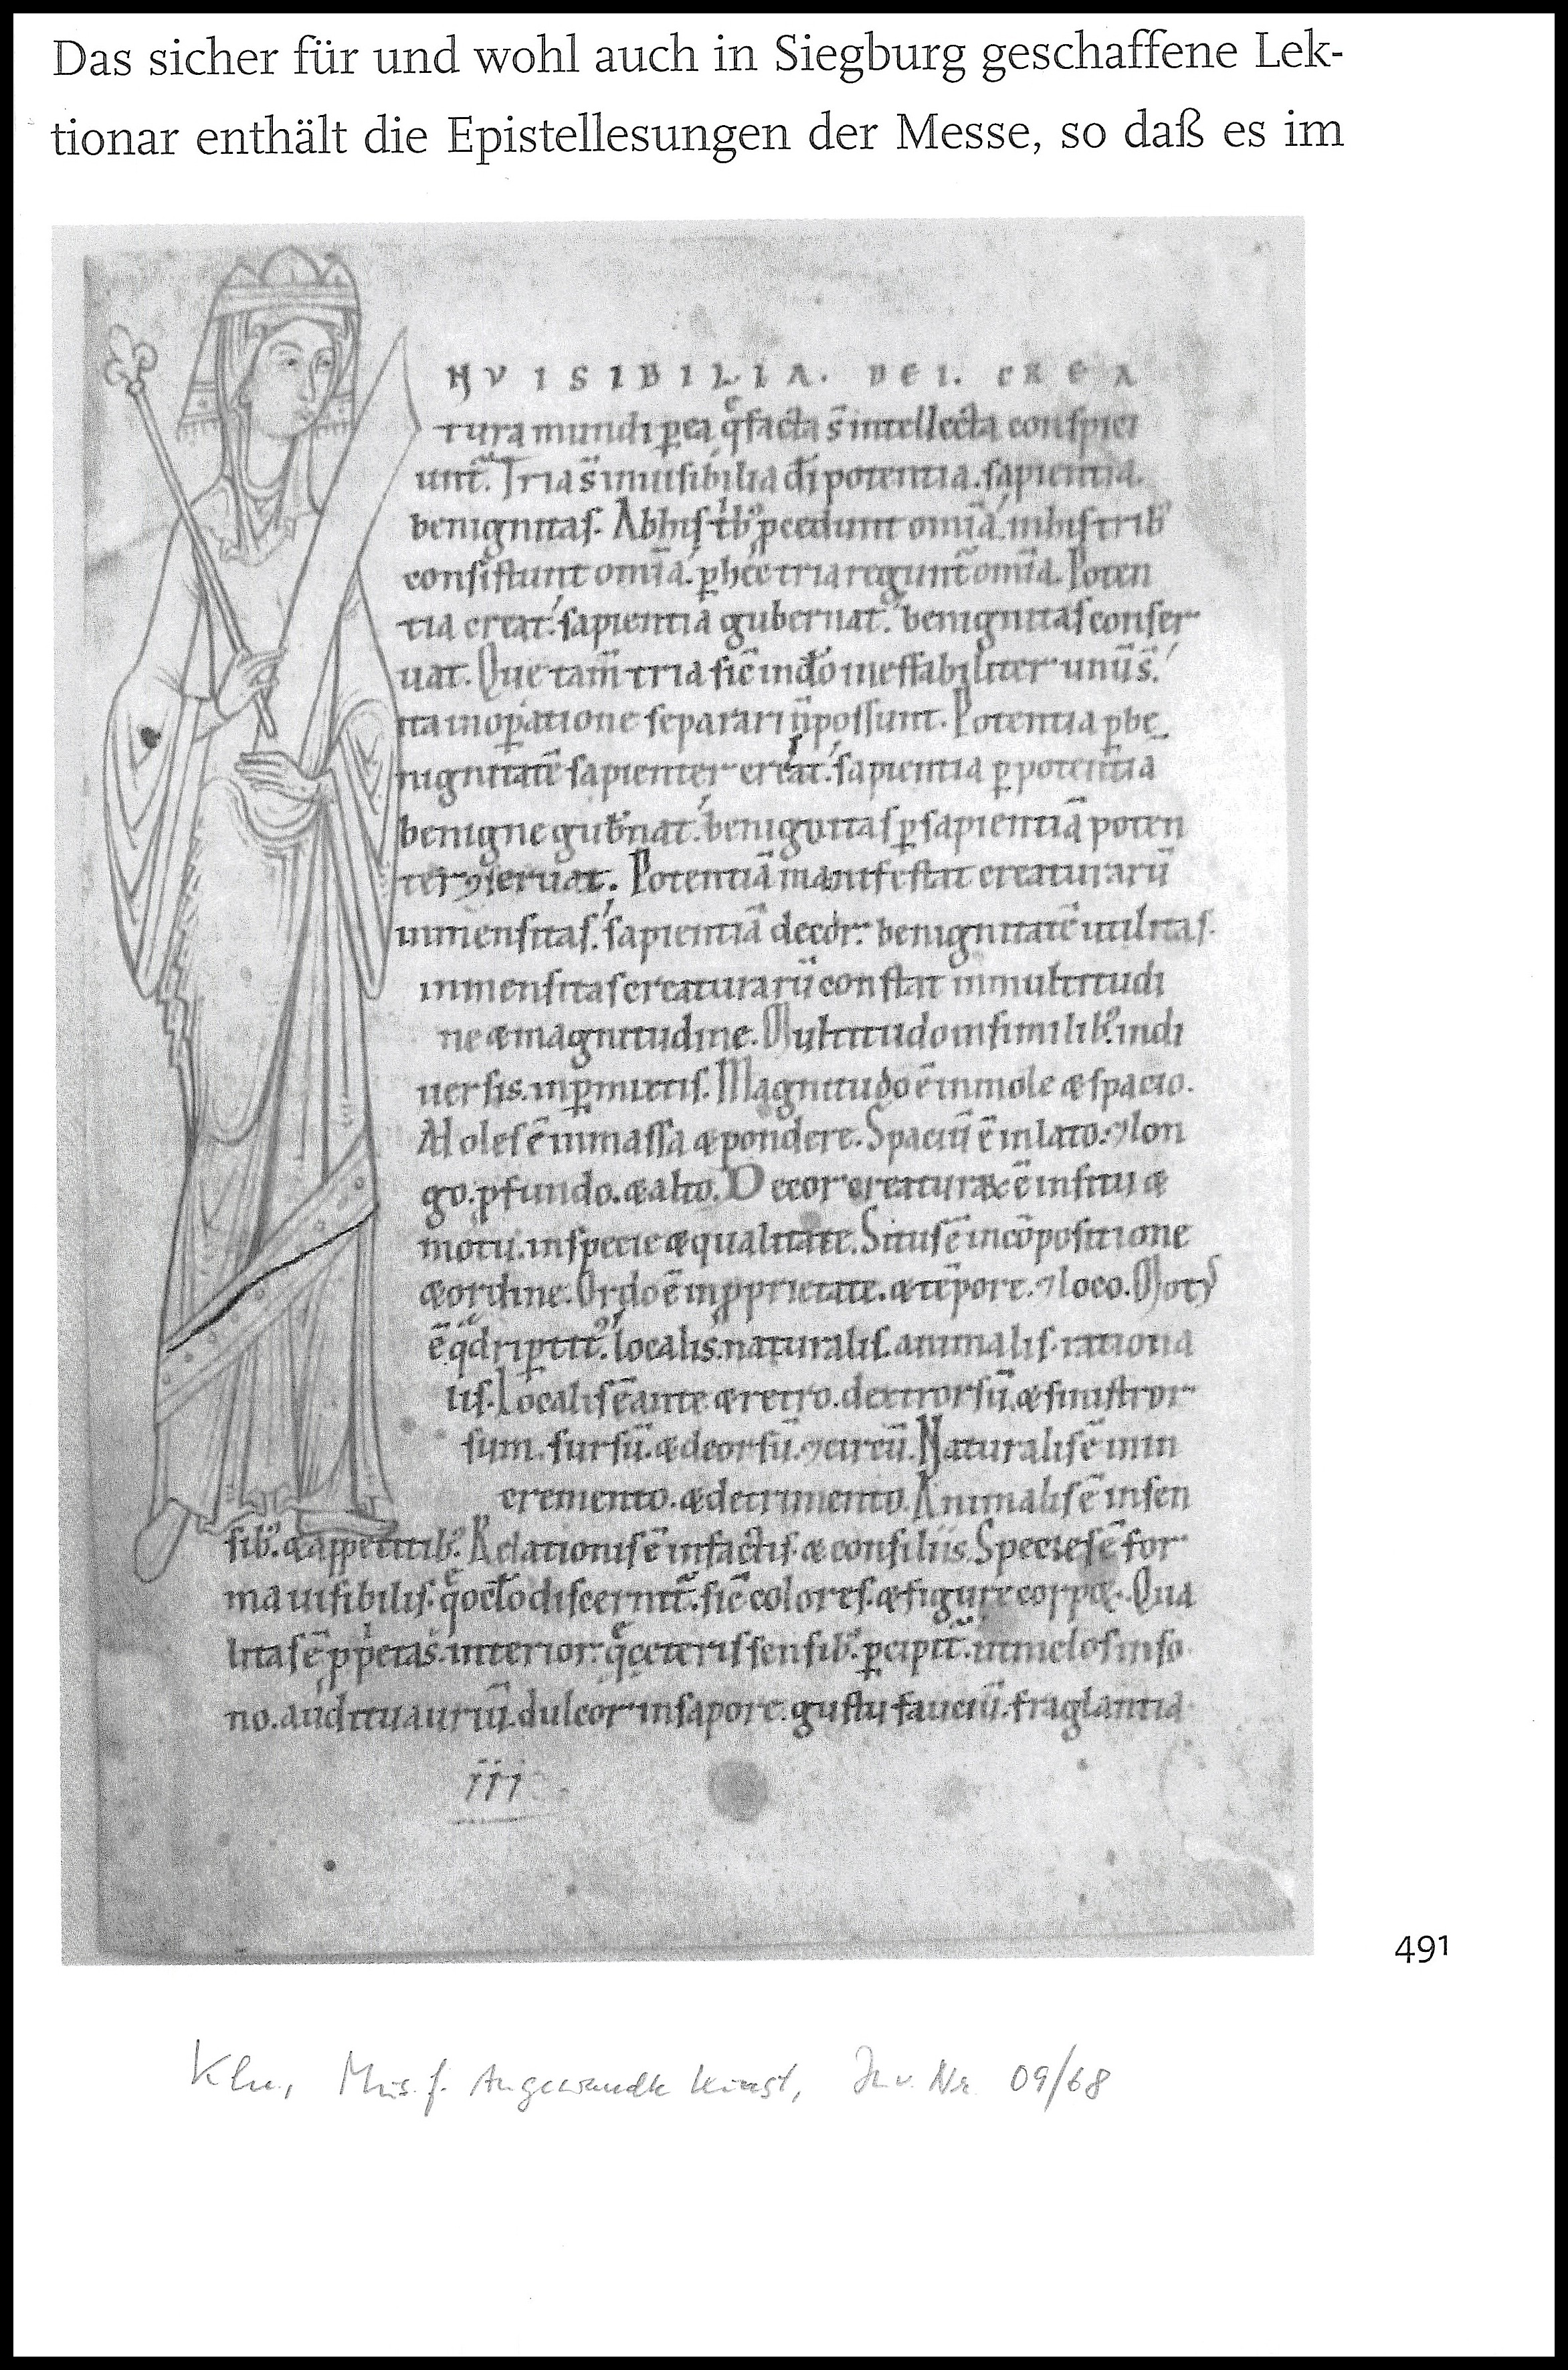 Das sicher für und wohl auch in Siegburg geschaffene Lek-
tionar enthält die Epistellesungen der Messe, so daß es im
NVISIBILIA. DEI. CREA
tura mundi ꝑ ea q̄ facta s̄ intellecta conspici
unt᷑. Tria s̄ inuisibilia dī potentia. sapientia.
benignitas. Ab his tͥbꝰ ꝓcedunt om̄ia. in his tribꝰ
consistunt om̄ia. ꝑ hec tria regunt᷑ om̄ia. Poten
tia creat. sapientia gubernat. benignitas conser
uat. Que tam̄ tria sic̄ in dō ineffabiliter unū s̄.
ita in oꝑatione separari n̄ possunt. Potentia ꝑ be
nignitatē sapienter creat. sapientia ꝑ potentia
benigne gub̄nat. benignitas ꝑ sapientiā poten
ter ꝯseruat. Potentiā manifestat creaturarū
inmensitas. sapientiā decor. benignitatē utilitas.
inmensitas creaturarū constat in multitudi
ne æ magnitudine. Multitudo in similibꝰ. in di
uersis. in ꝑmixtis. Magnitudo ē in mole æ spacio.
Moles ē in massa æ pondere. Spaciū ē in lato. ⁊ lon
go. ꝓfundo. æ alto. Decor creaturaꝝ ē in situ æ
motu. in specie æ qualitate. Situs ē in cōpositione
æ ordine. Ordo ē in ꝓprietate. æ tēpore. ⁊ loco. Motꝰ
ē q̇driꝑtitꝰ. localis. naturalis. animalis. rationa
lis. Localis ē ante æ retro. dextrorsū. æ sinistror
sum. sursū. æ deorsū. ⁊ circū. Naturalis ē in in
cremento. æ detrimento. Animalis ē in sen
sibꝰ. æ appetitibꝰ. Rationis ē in factis æ consiliis. Species ē for
ma uisibilis. q̄ oclo discernit᷑. sic̄ colores. æ figure corpoꝝ. Qua
litas ē ꝓp̄etas interior. q̄ ceteris sensibꝰ ꝑcipit᷑. ut melos in so
no. auditu auriū. dulcor in sapore. gustu fauciū. fraglantia
iii
491
Kln, Mus. f. Angewandte Kunst, Inv. Nr. 09/68